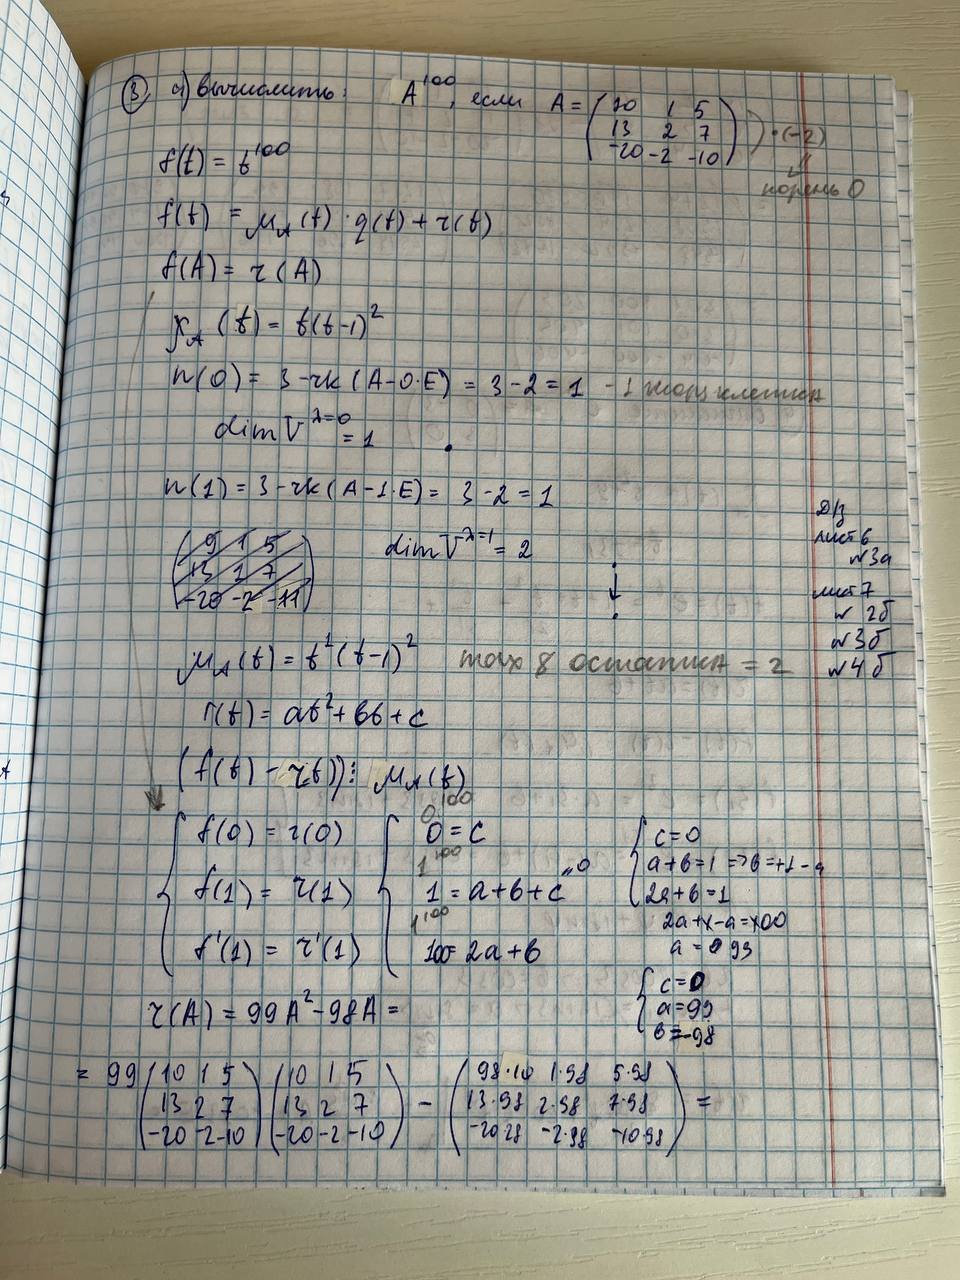 ③ а) вычислить: A^100, если A = (10 1 5
13 2 7
-20 -2 -10) ) · (-2)
корень 0
f(t) = t^100
f(t) = μ_A(t) · q(t) + r(t)
f(A) = r(A)
χ_A(t) = t(t-1)^2
n(0) = 3 - rk(A - 0·E) = 3 - 2 = 1 - 1 жорд клетка
dim V^λ=0 = 1
n(1) = 3 - rk(A - 1·E) = 3 - 2 = 1
(9 1 5
13 1 7
-20 -2 -11)
dim V^λ=1 = 2
Д/з
лист 6
№3а
лист 7
№ 2б
№3б
№4б
μ_A(t) = t^1(t-1)^2 max
остатка = 2
r(t) = at^2 + bt + c
(f(t) - r(t)) ⋮ μ_A(t)
{ f(0) = r(0)
f(1) = r(1)
f'(1) = r'(1)
{ 0^100 0 = c
1^100 1 = a + b + c "0
1^100 100 = 2a + b
{ c = 0
a + b = 1 => b = +1 - a
2a + b = 1
2a + 1 - a = 100
a = 99
{ c = 0
a = 99
b = -98
r(A) = 99A^2 - 98A =
= 99 (10 1 5
13 2 7
-20 -2 -10) (10 1 5
13 2 7
-20 -2 -10) - (98·10 1·98 5·98
13·98 2·98 7·98
-20·98 -2·98 -10·98) =